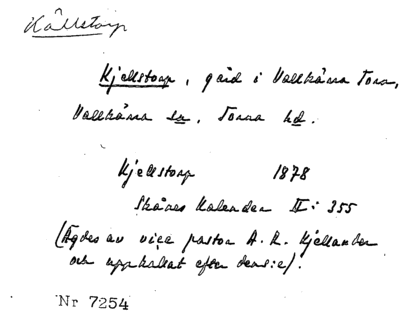 Källstorp
Kjellstorp, gård i Vallkärra Torn,
Vallkärra sn, Torna hd.
Kjellstorp 1878
Skånes Kalender II: 355
(Ägdes av vice pastor A. R. Kjellander
och uppkallat efter dens:e).
Nr 7254